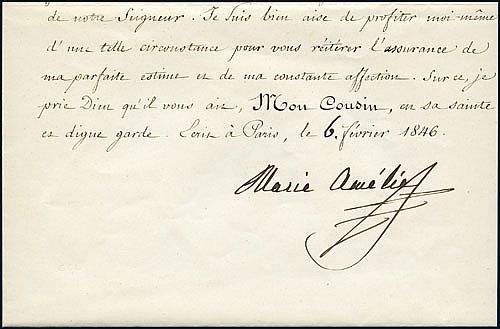 de notre Seigneur. Je suis bien aise de profiter moi-même
d'une telle circonstance pour vous réitérer l'assurance de
ma parfaite estime et de ma constante affection. Sur ce, je
prie Dieu qu'il vous ait, Mon Cousin, en sa sainte
et digne garde. Ecrit à Paris, le 6. février 1846.
Marie Amélie